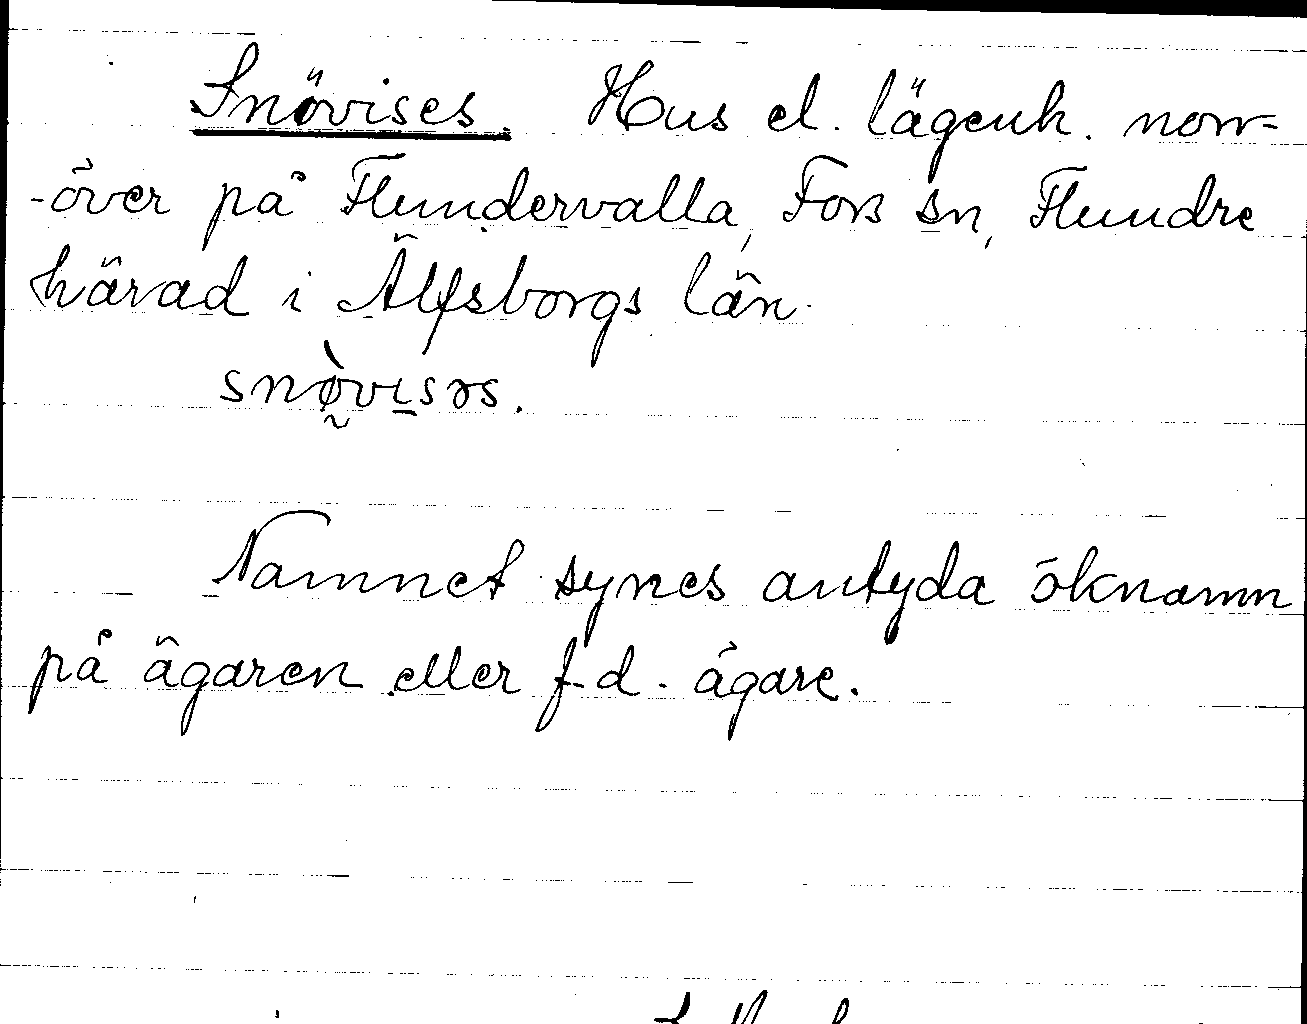 Snövises. Hus el. lägenh. norr-
-över på Flundervalla, Fors sn, Flundre
härad i Älfsborgs län.
snø̰̀vi̱səs.
Namnet synes antyda öknamn
på ägaren eller f.d. ägare.